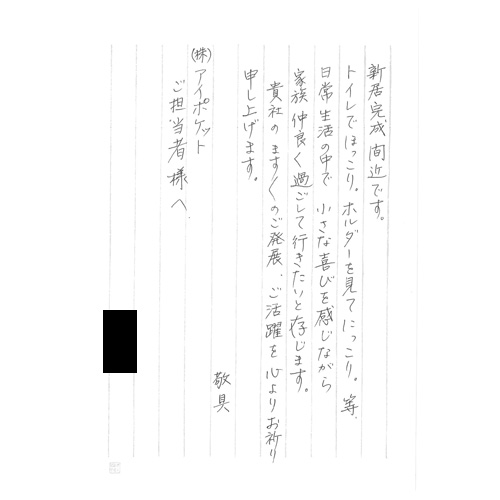 新居完成間近です。
トイレでほっこり。ホルダーを見てにっこり。等、
日常生活の中で小さな喜びを感じながら
家族仲良く過ごして行きたいと存じます。
貴社のます〱のご発展、ご活躍を心よりお祈り
申し上げます。
敬具
(株)アイポケット
ご担当者様へ